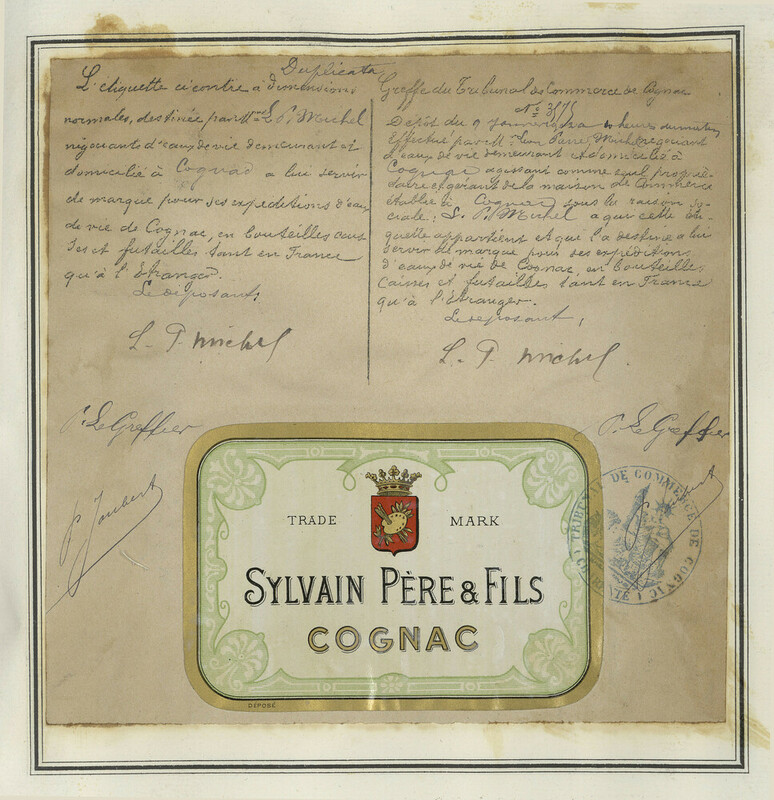 Duplicata
L'étiquette ci contre à dimensions
normales, destinée par Mr L. P. Michel
négociant d'eaux de vie demeurant et
domicilié à Cognac a lui servir
de marque pour ses expéditions d'eaux
de vie de Cognac, en bouteilles cais
ses et futailles tant en France
qu'à l'Etranger.
Le déposant,
L. P. Michel
P. Le Greffier
P. Joubert
Greffe du Tribunal de Commerce de Cognac
No 3575
Dépôt du 9 Janvier heures du matin
Effectué par Mr Léon Pierre Michel négociant
d'eaux de vie demeurant et domicilié à
Cognac agissant comme seul proprié-
taire et gérant de la maison de Commerce
établie à Cognac sous la raison so-
ciale; L. P. Michel a qui cette éti-
quette appartient et qui l'a destiné a lui
servir de marque pour ses expéditions
d'eaux de vie de Cognac, en bouteilles,
caisses et futailles tant en France
qu'à l'étranger.
Le déposant,
L. P. Michel
P. Le Greffier
TRIBUNAL DE COMMERCE DE COGNAC
TRADE MARK
SYLVAIN PÈRE & FILS
COGNAC
DÉPOSÉ